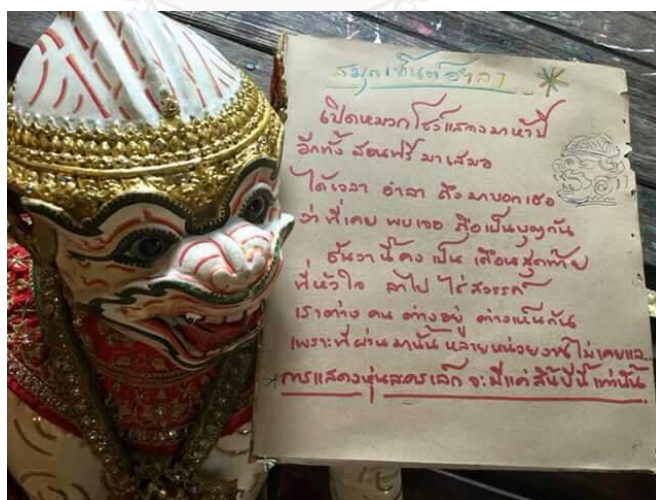 สมุดเซ็นต์อำลา
เปิดหมวกโชว์แสดงมาห้าปี
อีกทั้ง สอนฟรี มาเสมอ
ได้เวลา อำลา ถึงมาบอกเธอ
ว่าที่เคย พบเจอ ถือเป็นบุญกัน
ธันวานี้คงเป็น เดือนสุดท้าย
ที่หัวใจ ลาไป ไร่สวรรค์
เราต่างคน ต่างอยู่ ต่างเห็นกัน
เพราะที่ผ่านมานั้น หลายหน่วยงานไม่เคยแล...
*การแสดงหุ่นละครเล็ก จะมีแค่สิ้นปีนี้เท่านั้น